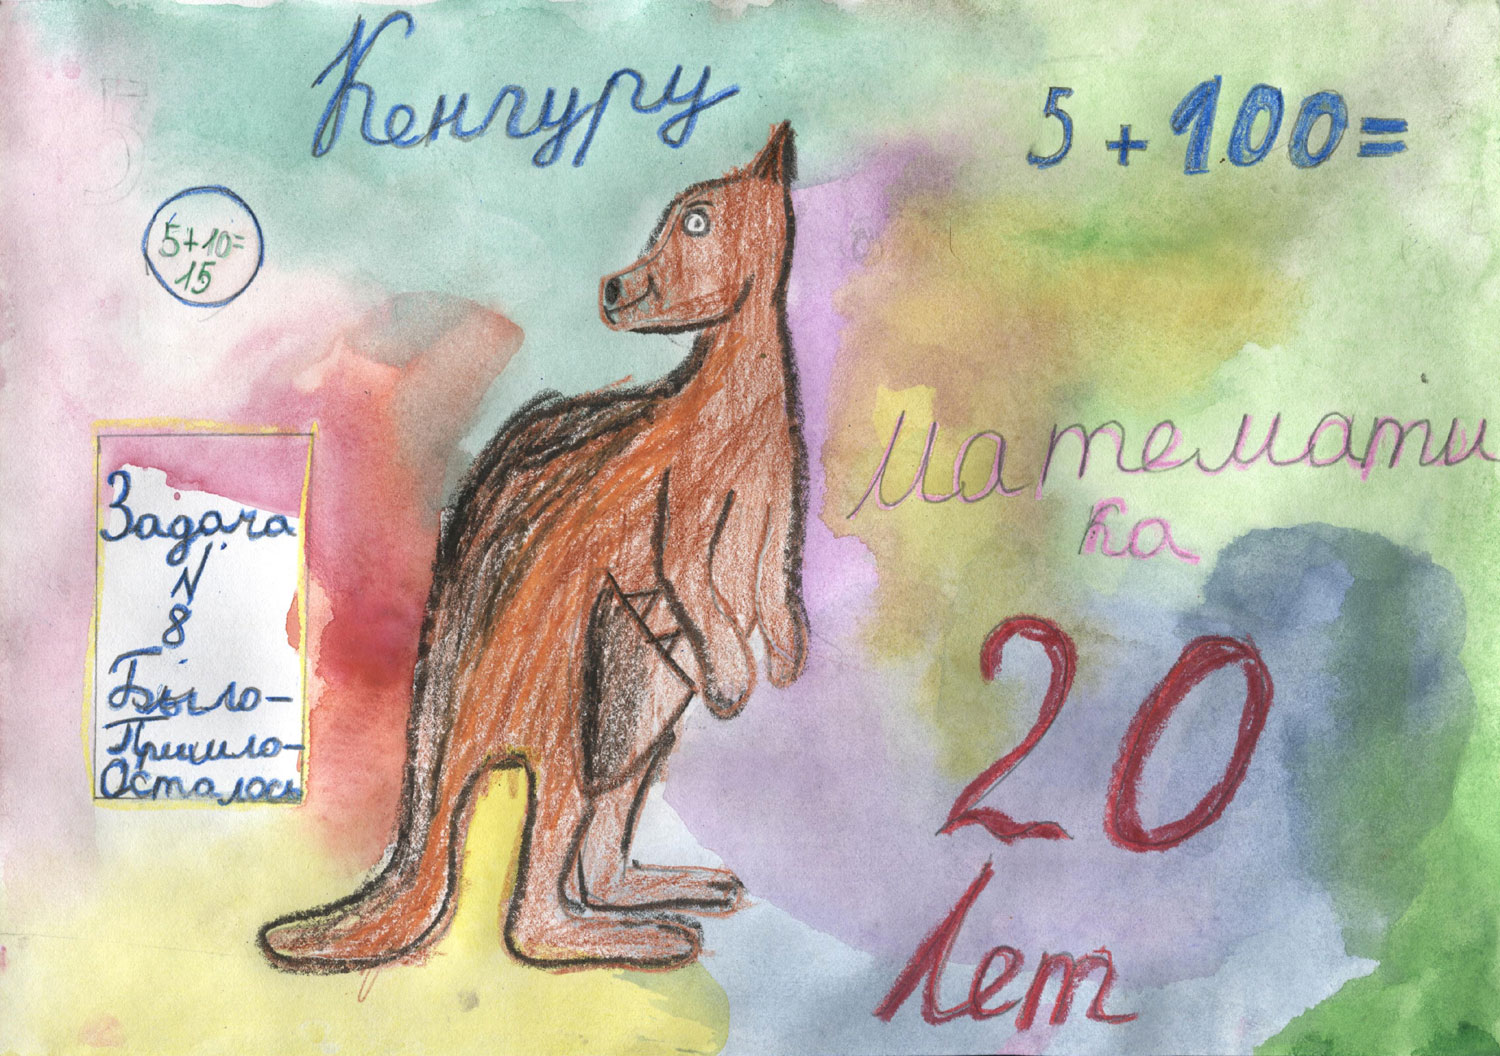 Кенгуру
5 + 100 =
5 + 10 =
15
Математи
ка
Задача
N
8
Было-
Пришло-
Осталось
20
лет